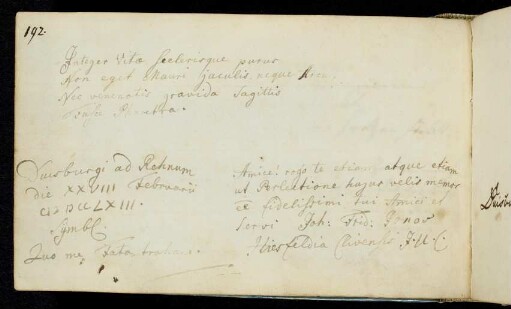 192.
Integer Vitæ Scelerisque purus
Non eget Mauri Jaculis neque Arcu
Nec venenatis gravida Sagittis
Fusce Pharetra.
Duisburgi ad Rhenum
die XXVIII Februarii
Symb:
Quo me Fata trahunt.
Amice! rogo te etiam atque etiam
ut Perlectione hujus velis memor
fidelissimi tui Amici et
Servi Joh: Frid:
Hiesfeldia Clivensis J.U.C.